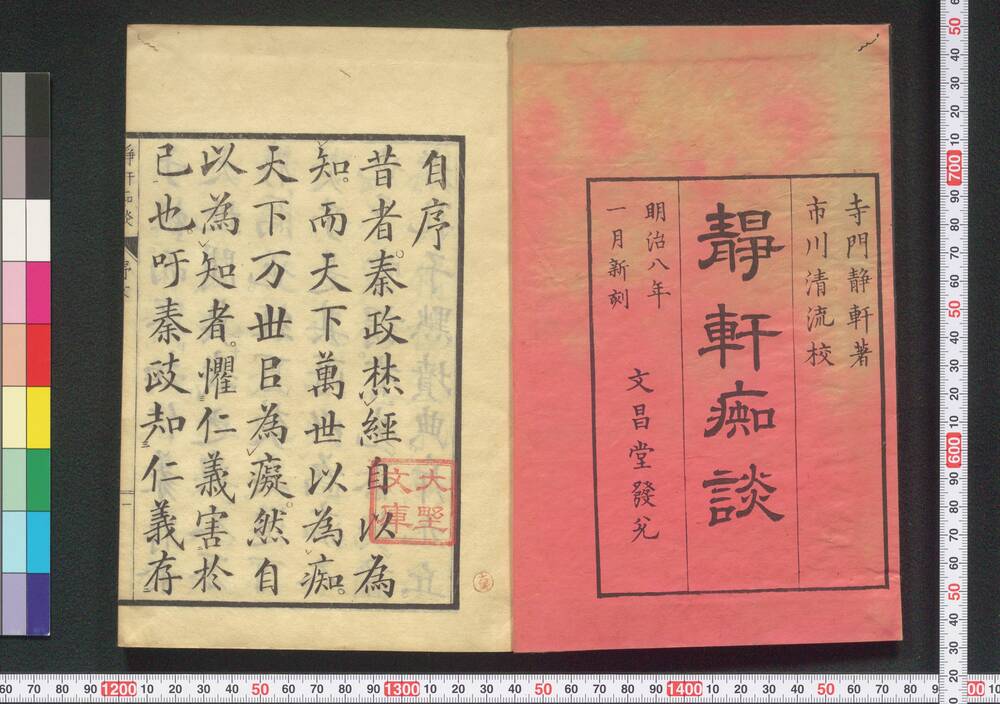 寺門静軒著
市川清流校
靜軒痴談
明治八年
一月新刻
文昌堂發兌
自序
昔者。秦政焚經自以為
知。而天下萬世以為痴。
天下万世㠯為癡。然自
以為知者。懼仁義害於
己也吁秦政知仁義存
大埜
文庫